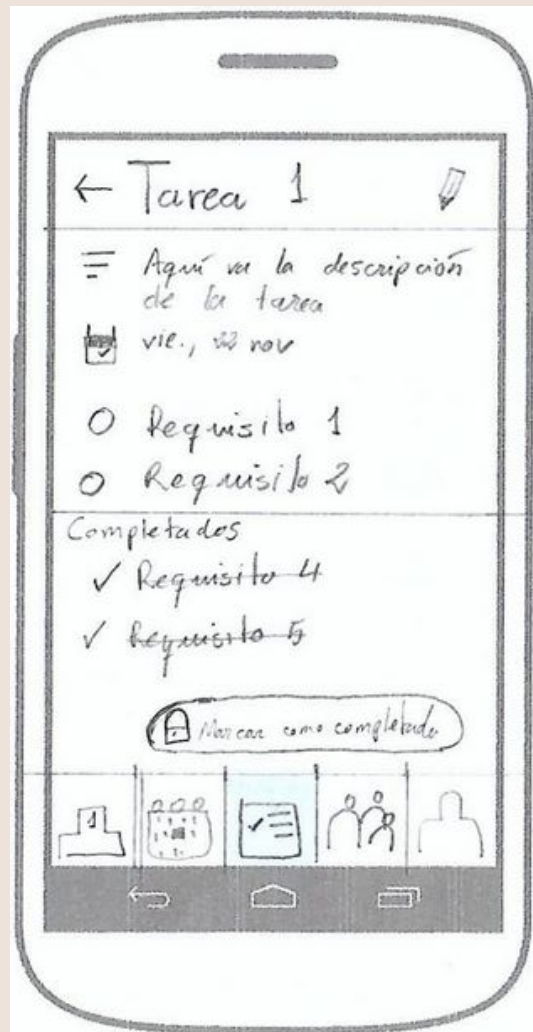 Tarea 1
Aquí va la descripción
de la tarea
vie., 22 nov
Requisito 1
Requisito 2
Completados
Requisito 4
Requisito 5
Marcar como completada
1